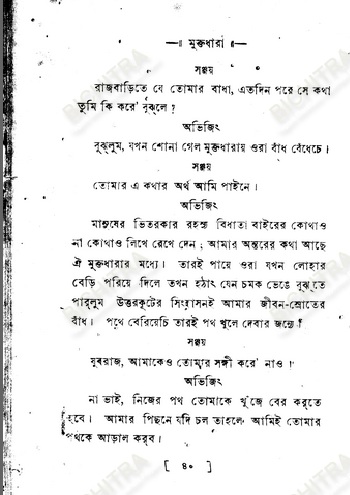 —॥ মুক্তধারা ॥—
সঞ্জয়
রাজবাড়িতে যে তোমার বাধা, এতদিন পরে সে কথা
তুমি কি করে' বুঝ্‌লে ?
অভিজিৎ
বুঝলুম, যখন শোনা গেল মুক্তধারায় ওরা বাঁধ বেঁধেচে।
সঞ্জয়
তোমার এ কথার অর্থ আমি পাইনে।
অভিজিৎ
মানুষের ভিতরকার রহস্য বিধাতা বাইরের কোথাও
না কোথাও লিখে রেখে দেন ; আমার অন্তরের কথা আছে
ঐ মুক্তধারার মধ্যে। তারই পায়ে ওরা যখন লোহার
বেড়ি পরিয়ে দিলে তখন হঠাৎ যেন চমক ভেঙে বুঝ্‌তে
পারলুম উত্তরকূটের সিংহাসনই আমার জীবন-স্রোতের
বাঁধ। পথে বেরিয়েচি তারই পথ খুলে দেবার জন্যে।
সঞ্জয়
যুবরাজ, আমাকেও তোমার সঙ্গী করে' নাও।
অভিজিৎ
না ভাই, নিজের পথ তোমাকে খুঁজে বের কর্‌তে
হবে। আমার পিছনে যদি চল তাহলে আমিই তোমার
পথকে আড়াল করব।
[ ৪০ ]
BICHITRA